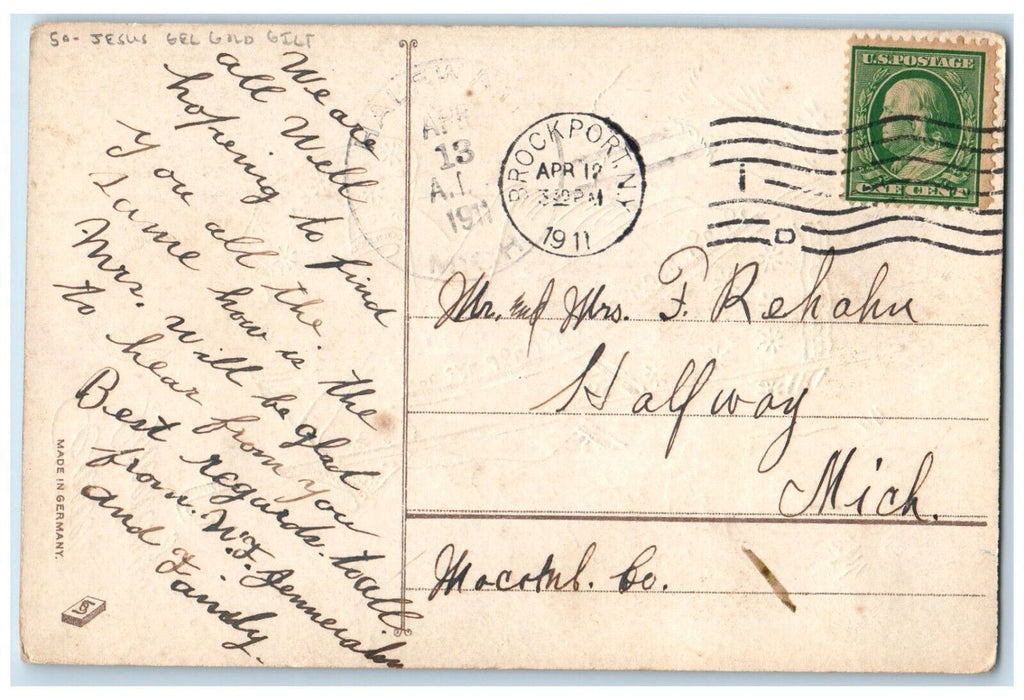 50- JESUS GEL GOLD GILT
We are
all well
hoping to find
you all the
same how is the
Mrs. will be glad
to hear from you
Best regards to all
from W.F.
and Family.
MADE IN GERMANY.
HALFWAY
APR
13
A.M.
1911
MICH.
BROCKPORT, N.Y.
APR 12
3 30 PM
1911
U.S. POSTAGE
ONE CENT
Mr. and Mrs. F. Rehahn
Halfway
Mich.
Macomb. Co.